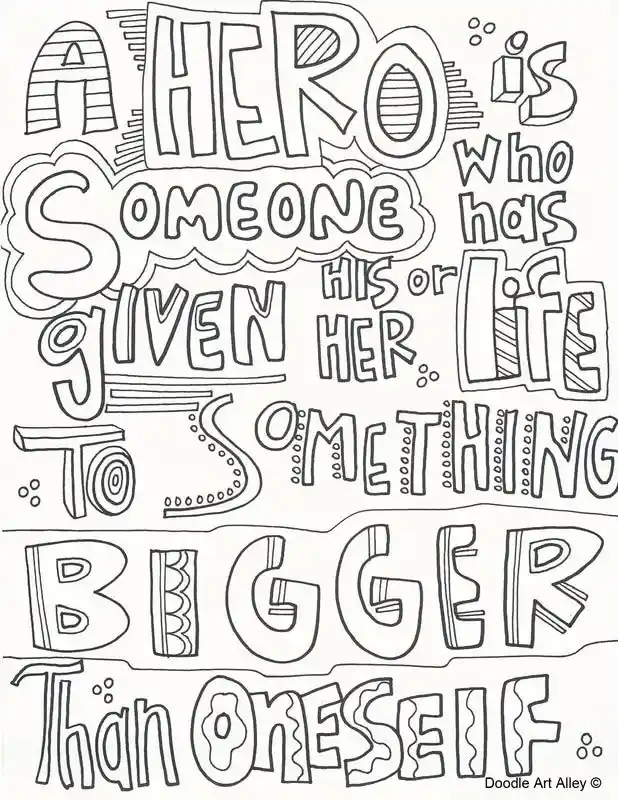 A HERO is
SOMEONE who has
giVEN HIS or HER LifE
TO SOMETHING
BIGGER
Than OnESElF
Doodle Art Alley ©